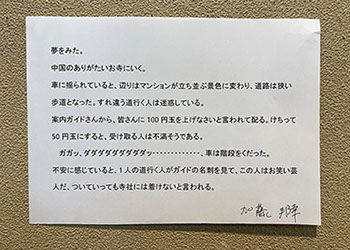 夢をみた。
中国のありがたいお寺にいく。
車に揺られていると、辺りはマンションが立ち並ぶ景色に変わり、道路は狭い
歩道となった。すれ違う道行く人は迷惑している。
案内ガイドさんから、皆さんに100円玉を上げなさいと言われて配る。けちって
50円玉にすると、受け取る人は不満そうである。
ガガッ、ダダダダダダダダダッ・・・・・・・・・・・・・、車は階段をくだった。
不安に感じていると、1人の道行く人がガイドの名刺を見て、この人はお笑い芸
人だ、ついていっても寺社には着けないと言われる。
加藤 邦